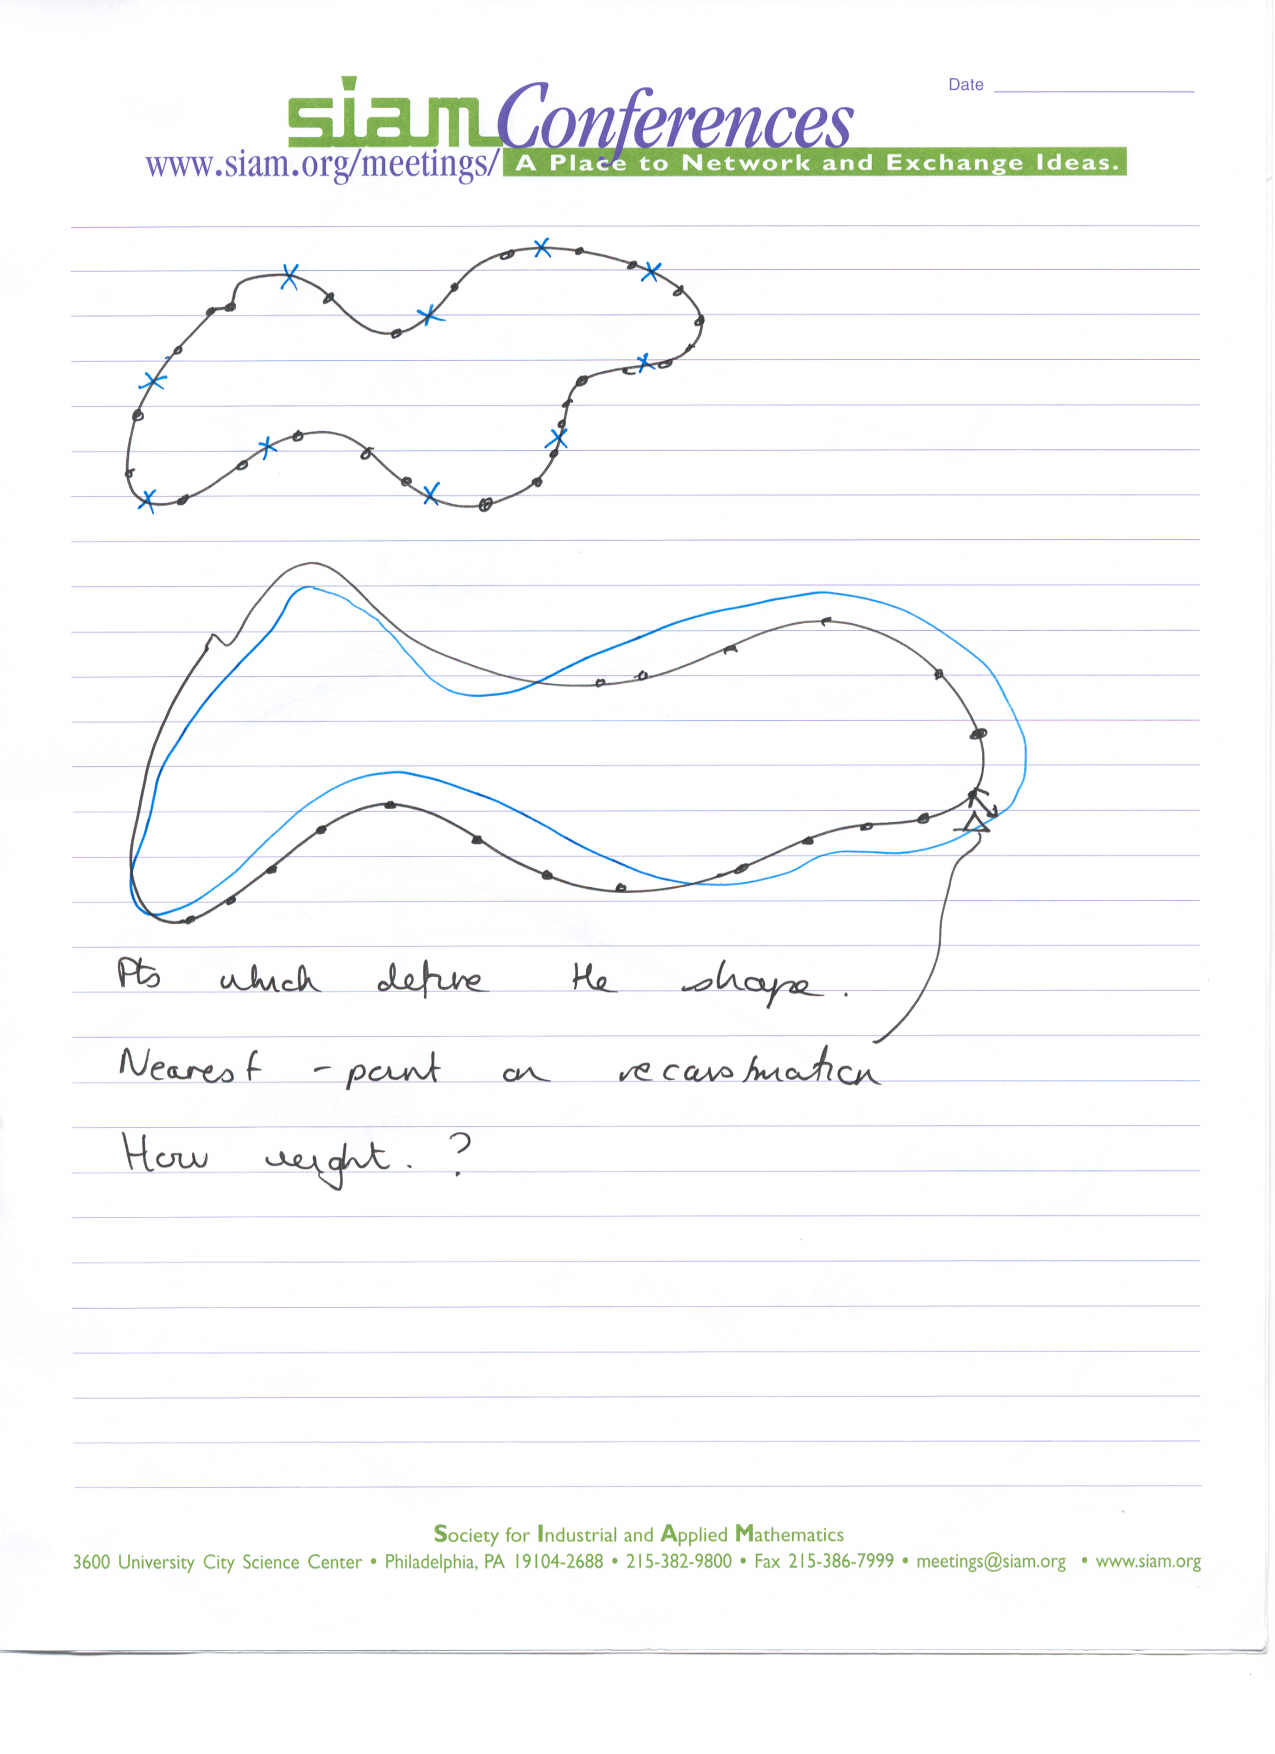 Date
siam Conferences
www.siam.org/meetings/ A Place to Network and Exchange Ideas.
Δ
Pts which define the shape.
Nearest - point on reconstruction
How weight. ?
Society for Industrial and Applied Mathematics
3600 University City Science Center • Philadelphia, PA 19104-2688 • 215-382-9800 • Fax 215-386-7999 • meetings@siam.org • www.siam.org